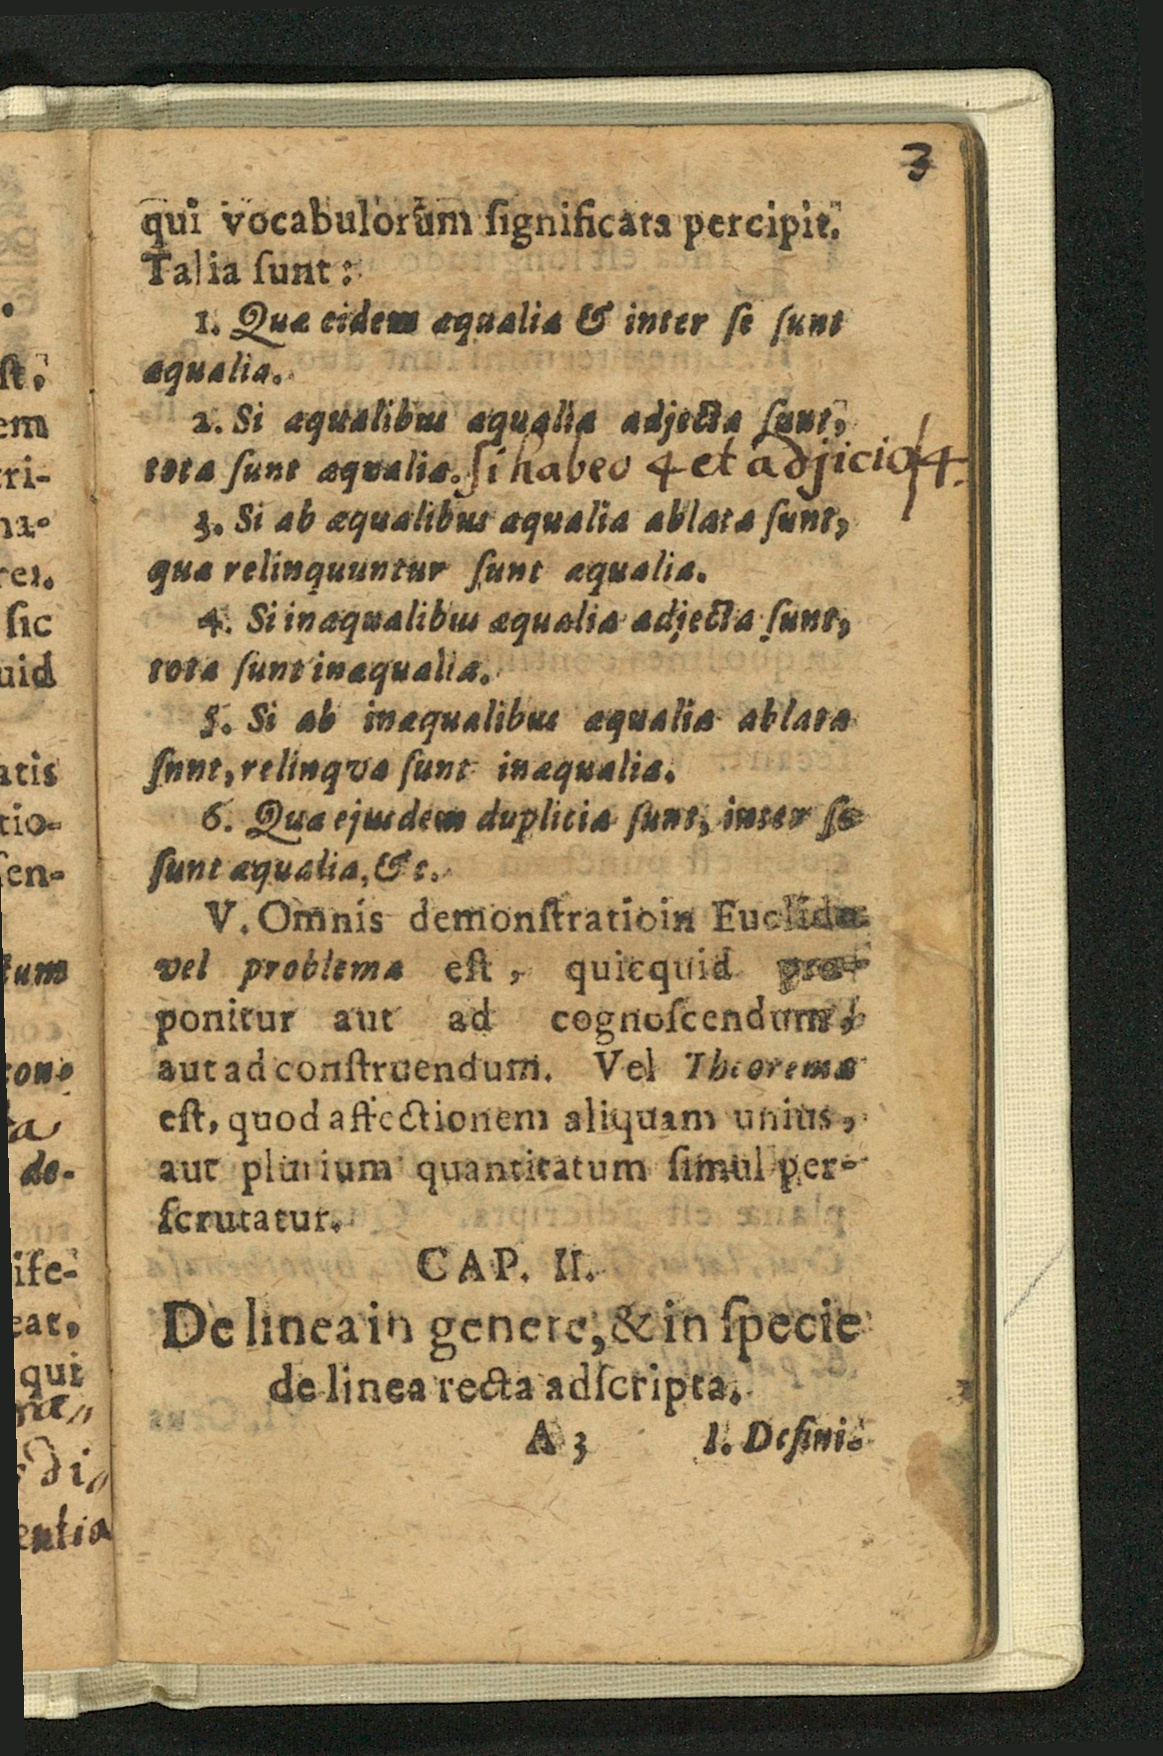 3
qui vocabulorum ſignificata percipit.
Talia ſunt:
1. Quæ eidem æqualia & inter ſe ſunt
æqualia.
2. Si æqualibus æqualia adjecta ſunt,
tota ſunt æqualia. ſi habeo 4 et adjicio 4.
3. Si ab æqualibus æqualia ablata ſunt,
quæ relinquuntur ſunt æqualia.
4. Si inæqualibus æqualia adjecta ſunt,
tota ſunt inæqualia.
5. Si ab inæqualibus æqualia ablata
ſunt, relinqva ſunt inæqualia.
6. Quæ ejusdem duplicia ſunt, inter ſe
ſunt æqualia, &c.
V. Omnis demonſtratio in Euclide
vel problema eſt, quicquid pro-
ponitur aut ad cognoſcendum,
aut ad conſtruendum. Vel Theorema
eſt, quod affectionem aliquam unius,
aut plurium quantitatum ſimul per-
ſcrutatur.
CAP. II.
De linea in genere, & in ſpecie
de linea recta adſcripta.
A 3 I. Defini-